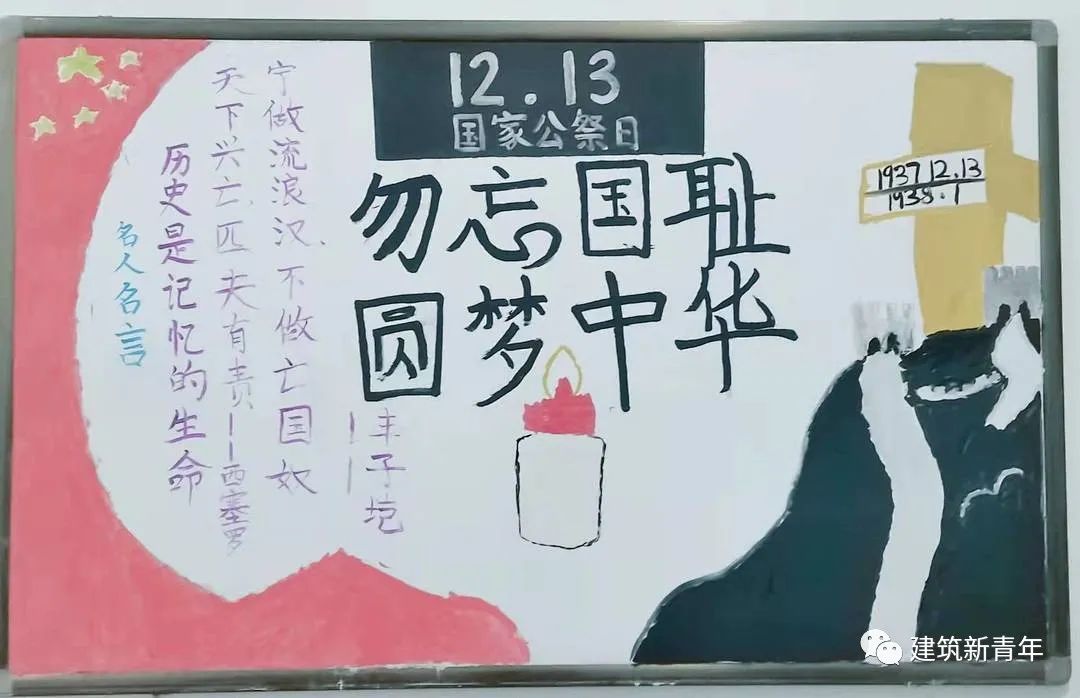 12.13
国家公祭日
勿忘国耻
圆梦中华
名人名言
历史是记忆的生命
天下兴亡.匹夫有责——西塞罗
宁做流浪汉、不做亡国奴
——丰子垲
1937 12.13
1938.1
建筑新青年